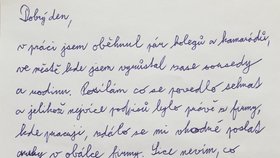 Dobrý den,
v práci jsem oběhnul pár kolegů a kamarádů,
ve městě kde jsem vyrůstal zase sousedy
a rodinu. Posílám co se povedlo sehnat
a jelikož nejvíce podpisů bylo právě z firmy,
kde pracuji, zdálo se mi vhodné poslat
v obálce firmy. Sice nevím, co